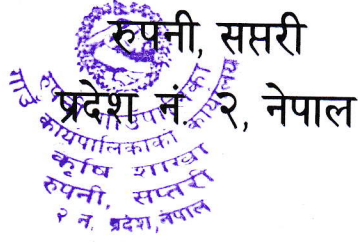 रुपनी, सप्तरी
प्रदेश नं. २, नेपाल
गाउँ कार्यपालिकाको कार्यालय
कृषि शाखा
रुपनी, सप्तरी
२ नं. प्रदेश, नेपाल